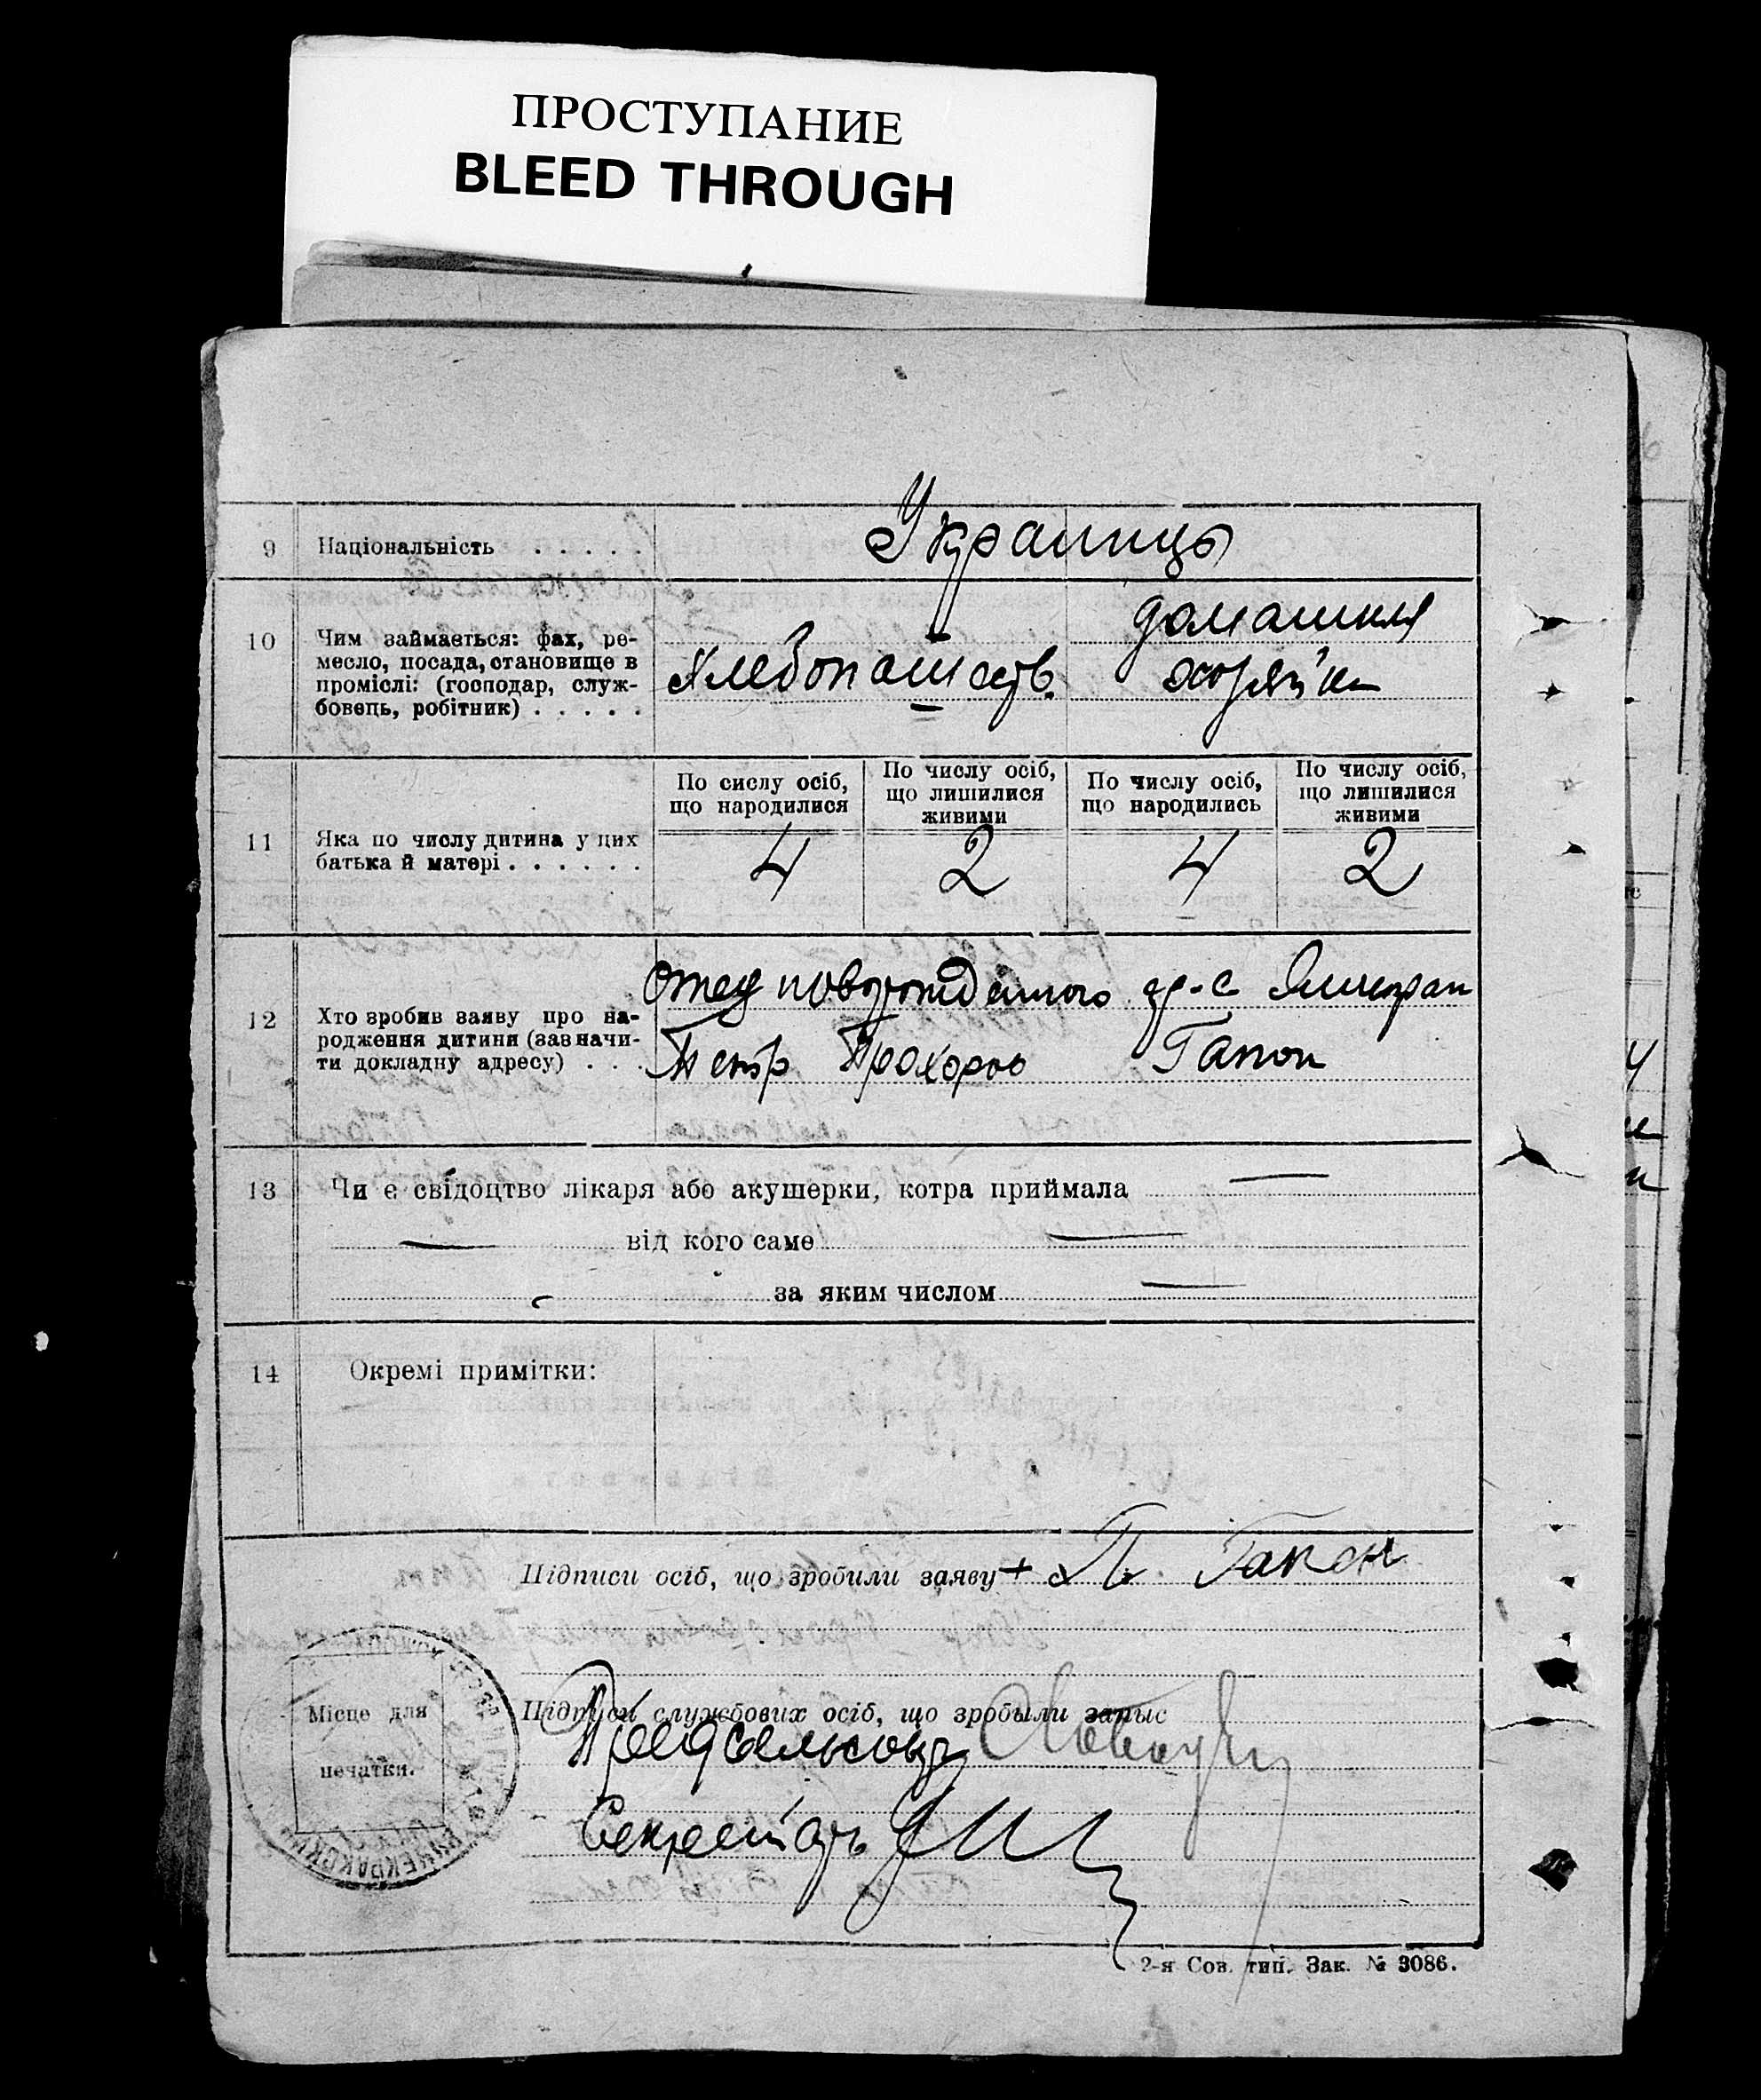 ПРОСТУПАНИЕ
BLEED THROUGH
9 Національність . . . . .
Украинцы
10 Чим займається: фах, ре-
месло, посада, становище в
проміслі: (господар, служ-
бовець, робітник) . . . . .
Хлебопашеств.
домашняя
хозяйк
По сислу осіб,
що народилися
По числу осіб,
що лишилися
живими
По числу осіб,
що народились
По числу осіб,
що лишилися
живими
11 Яка по числу дитина у цих
батька й матері . . . . . .
4 2 4 2
12 Хто зробив заяву про на-
родження дитини (зазначи-
ти докладну адресу) . . .
Отец новорожденного гр. с.
Петр Прохоров Гапон
13 Чи є свідоцтво лікаря або акушерки, котра приймала —
— від кого саме —
за яким числом —
14 Окремі примітки:
Підписи осіб, що зробили заяву + П. Гапон
Місце для
печатки.
Підписи службових осіб, що зробыли запыс
Предсельсовета
Секретарь
2-я Сов. тип. Зак. № 3086.